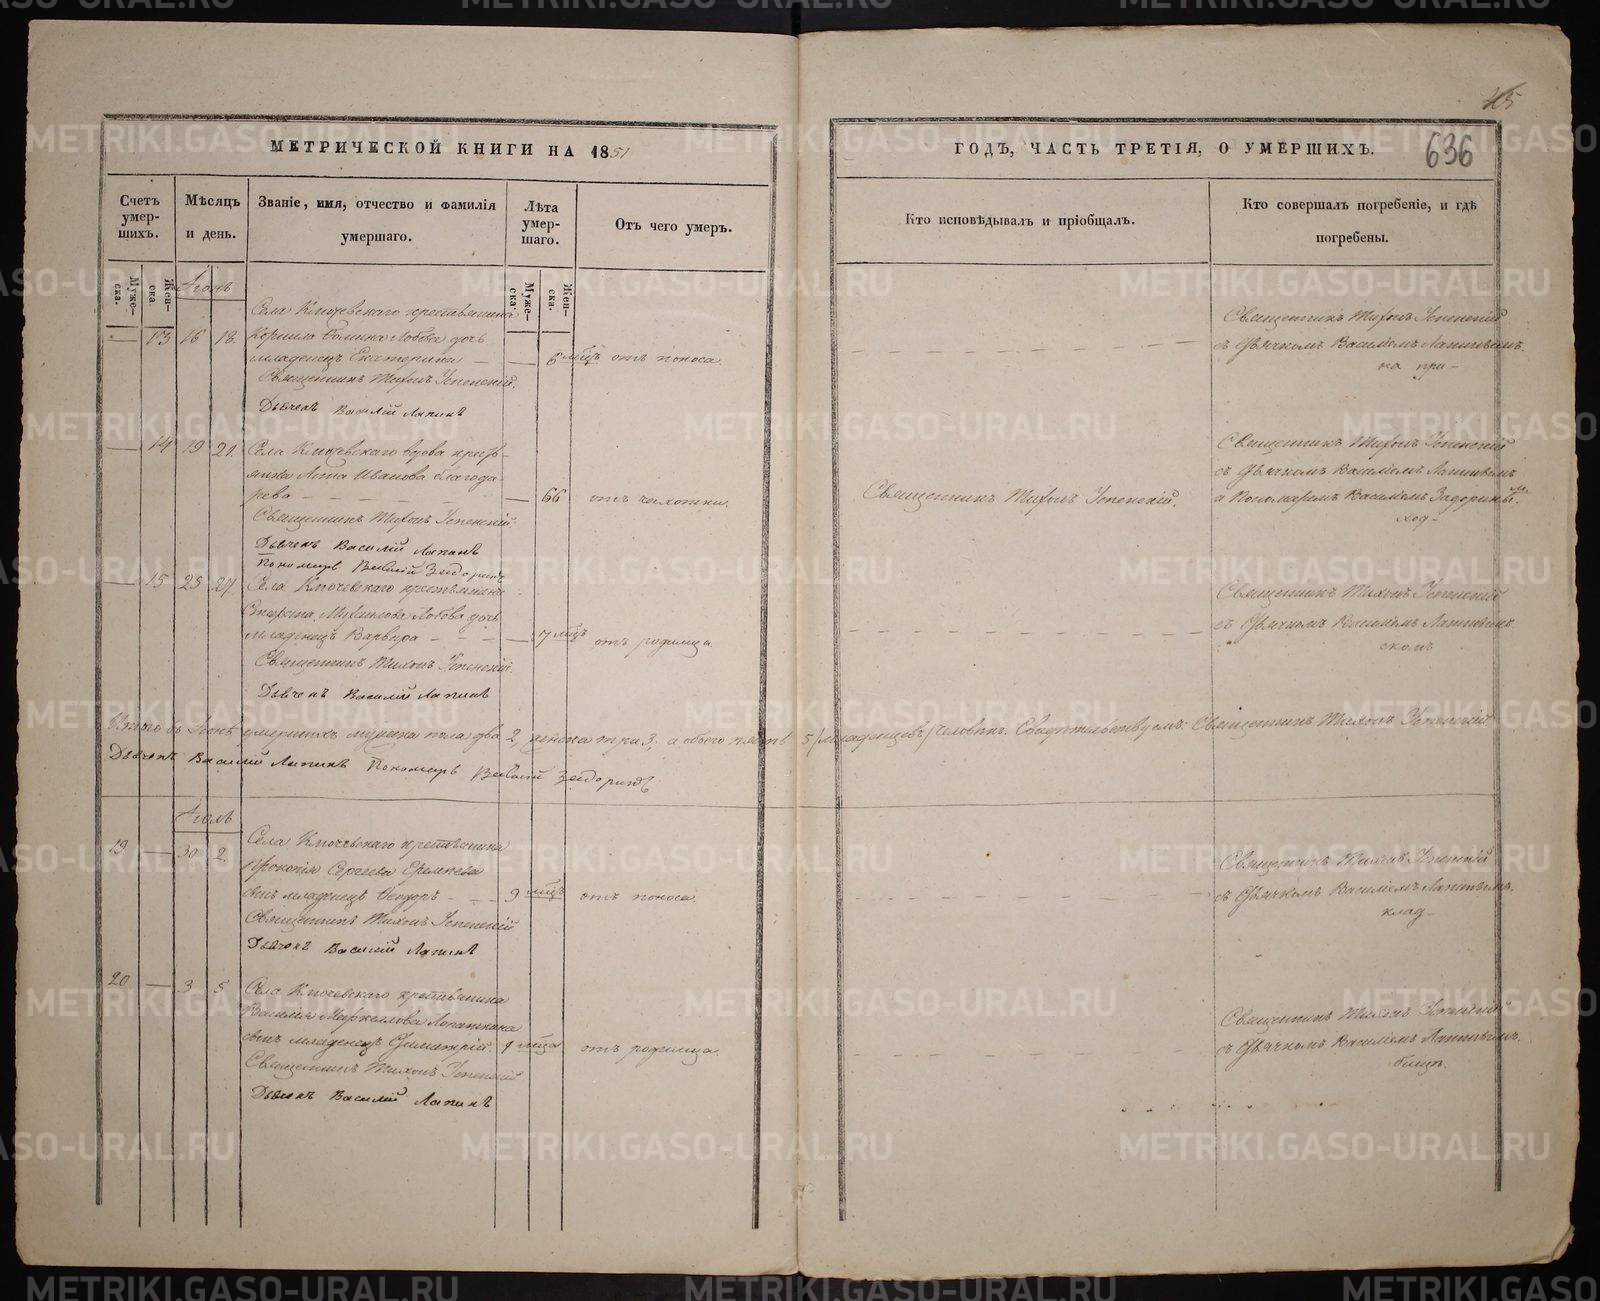 45
636
МЕТРИЧЕСКОЙ КНИГИ НА 1851
ГОДЪ, ЧАСТЬ ТРЕТІЯ, О УМЕРШИХЪ.
Счетъ умер-
шихъ.
Муже-
ска.
Жен-
ска.
Мѣсяцъ
и день.
Званіе, имя, отчество и фамилія
умершаго.
Лѣта
умер-
шаго.
Муже-
ска.
Жен-
ска.
Отъ чего умеръ.
Кто исповѣдывалъ и пріобщалъ.
Кто совершалъ погребеніе, и гдѣ
погребены.
Іюнь
13 16 18.
Села Ключевскаго крестьянина
Корнила Лобова дочь
младенецъ Екатерина
6 мцъ отъ поноса.
Священникъ Тихонъ Успенскій.
Дьячекъ Василій Лапинъ
Священникъ Тихонъ Успенскій
съ Дьячкомъ Василіемъ Лапинымъ.
на при-
14 19 21.
Села Ключевскаго вдова крест-
янка Анна Иванова Благода-
рева
66 отъ чахотки.
Священникъ Тихонъ Успенскій
Дьячекъ Василій Лапинъ
Пономарь Василій Задоринъ
Священникъ Тихонъ Успенскій.
Священникъ Тихонъ Успенскій
съ Дьячкомъ Василіемъ Лапинымъ
и Пономаремъ Василіемъ Задоринымъ.
ход-
15 25 27.
Села Ключевскаго крестьянина
Михаилова Лобова дочь
младенецъ Варвара
7 мцъ отъ родимца.
Священникъ Тихонъ Успенскій.
Дьячекъ Василій Лапинъ
Священникъ Тихонъ Успенскій
съ Дьячкомъ Василіемъ Лапинымъ.
скомъ
Всего въ Іюнѣ умершихъ мужска пола два 2, женска три 3, а обоего пять 5 /младенцевъ/ человѣкъ. Свидѣтельствуемъ: Священникъ Тихонъ Успенскій
Дьячекъ Василій Лапинъ Пономарь Василій Задоринъ
Іюль
19 30 2.
Села Ключевскаго крестьянина
Прокопія Сергеева
сынъ младенецъ Ѳеодоръ
9 мцъ отъ поноса.
Священникъ Тихонъ Успенскій
Дьячекъ Василій Лапинъ
Священникъ Тихонъ Успенскій
съ Дьячкомъ Василіемъ Лапинымъ.
клад-
20 3 5.
Села Ключевскаго крестьянина
Василія Маркеллова Лопаткина
сынъ младенецъ Димитрій
отъ родимца.
Священникъ Тихонъ Успенскій
Дьячекъ Василій Лапинъ
Священникъ Тихонъ Успенскій
съ Дьячкомъ Василіемъ Лапинымъ.
бищѣ.
METRIKI.GASO-URAL.RU